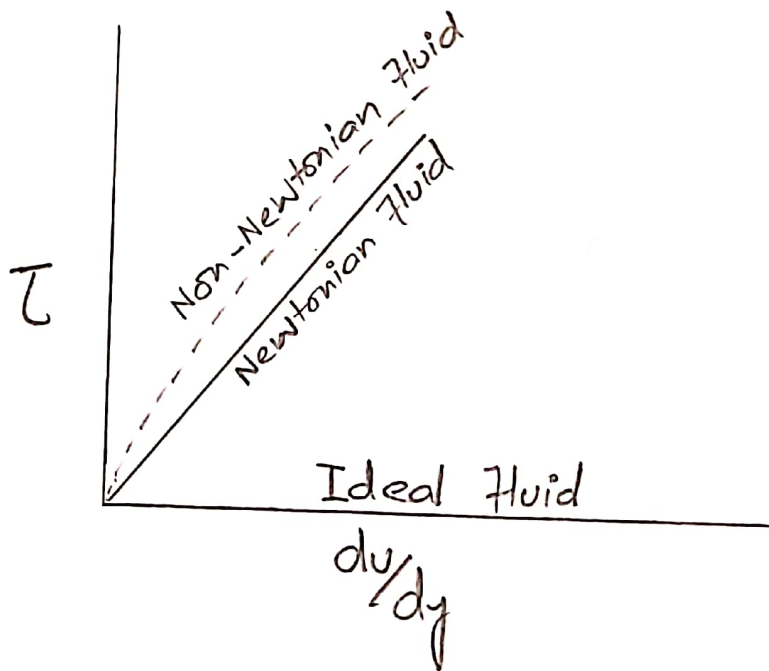 Non-Newtonian Fluid
Newtonian Fluid
τ
Ideal Fluid
du/dy